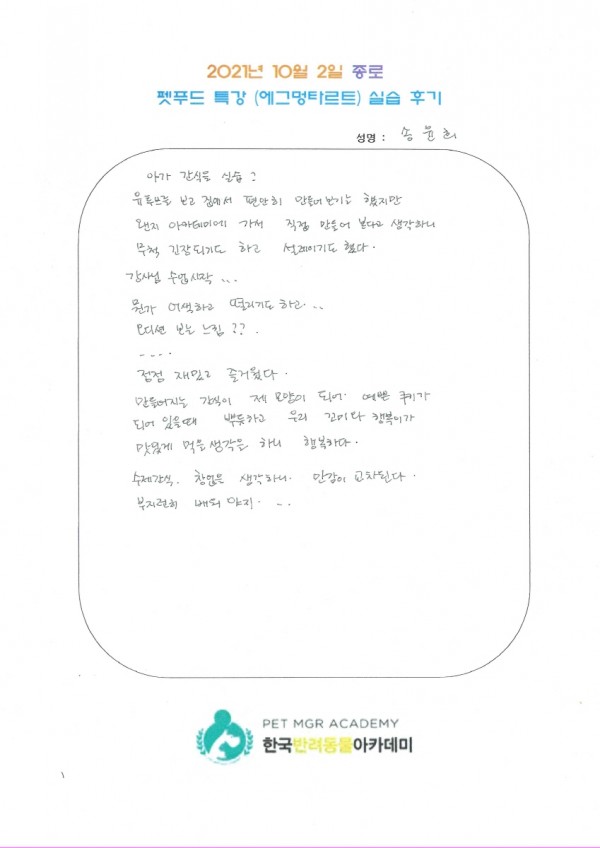 2021년 10월 2일 종로
펫푸드 특강 (에그멍타르트) 실습 후기
성명 : 송윤희
아가 간식을 실습?
유튜브를 보고 집에서 편안히 만들어 보기는 했지만
왠지 아카데미에 가서 직접 만들어 본다고 생각하니
무척 긴장되기도 하고 설레이기도 했다.
강사님 수업시작 ...
뭔가 어색하고 떨리기도 하고...
오디션 보는 느낌??.
....
점점 재밌고 즐거웠다.
만들어지는 간식이 제 모양이 되어. 예쁜 쿠키가
되어 있을때 뿌듯하고 우리 꼬미와 행복이가
맛있게 먹을생각을 하니 행복하다.
수제간식. 창업을 생각하니. 만감이 교차된다.
부지런히 배워 야지. ..
PET MGR ACADEMY
한국반려동물아카데미